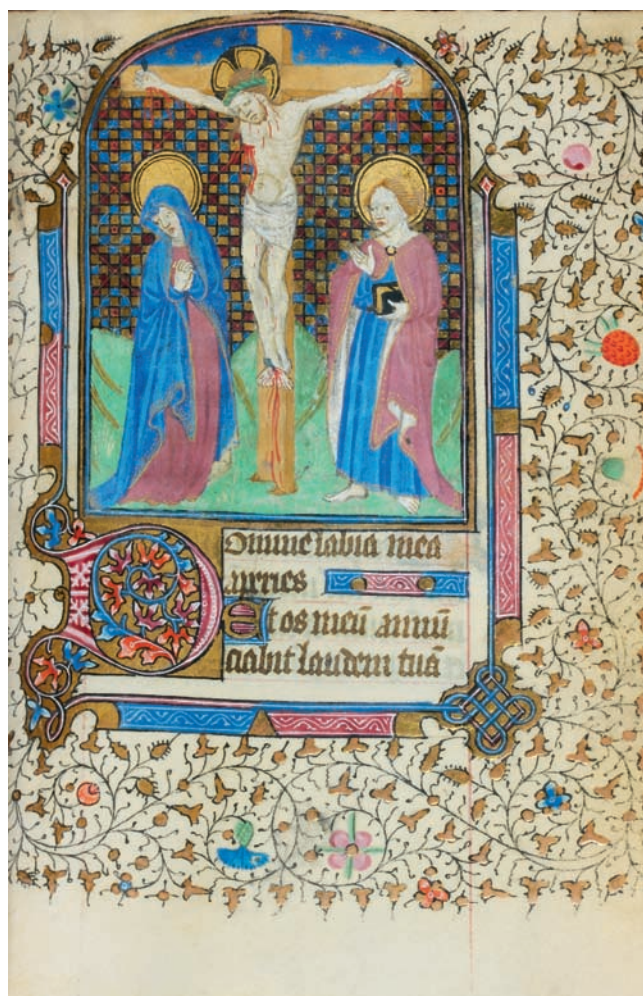 Domine labia mea
aperies
Et os meū annū
ciabit laudem tuā